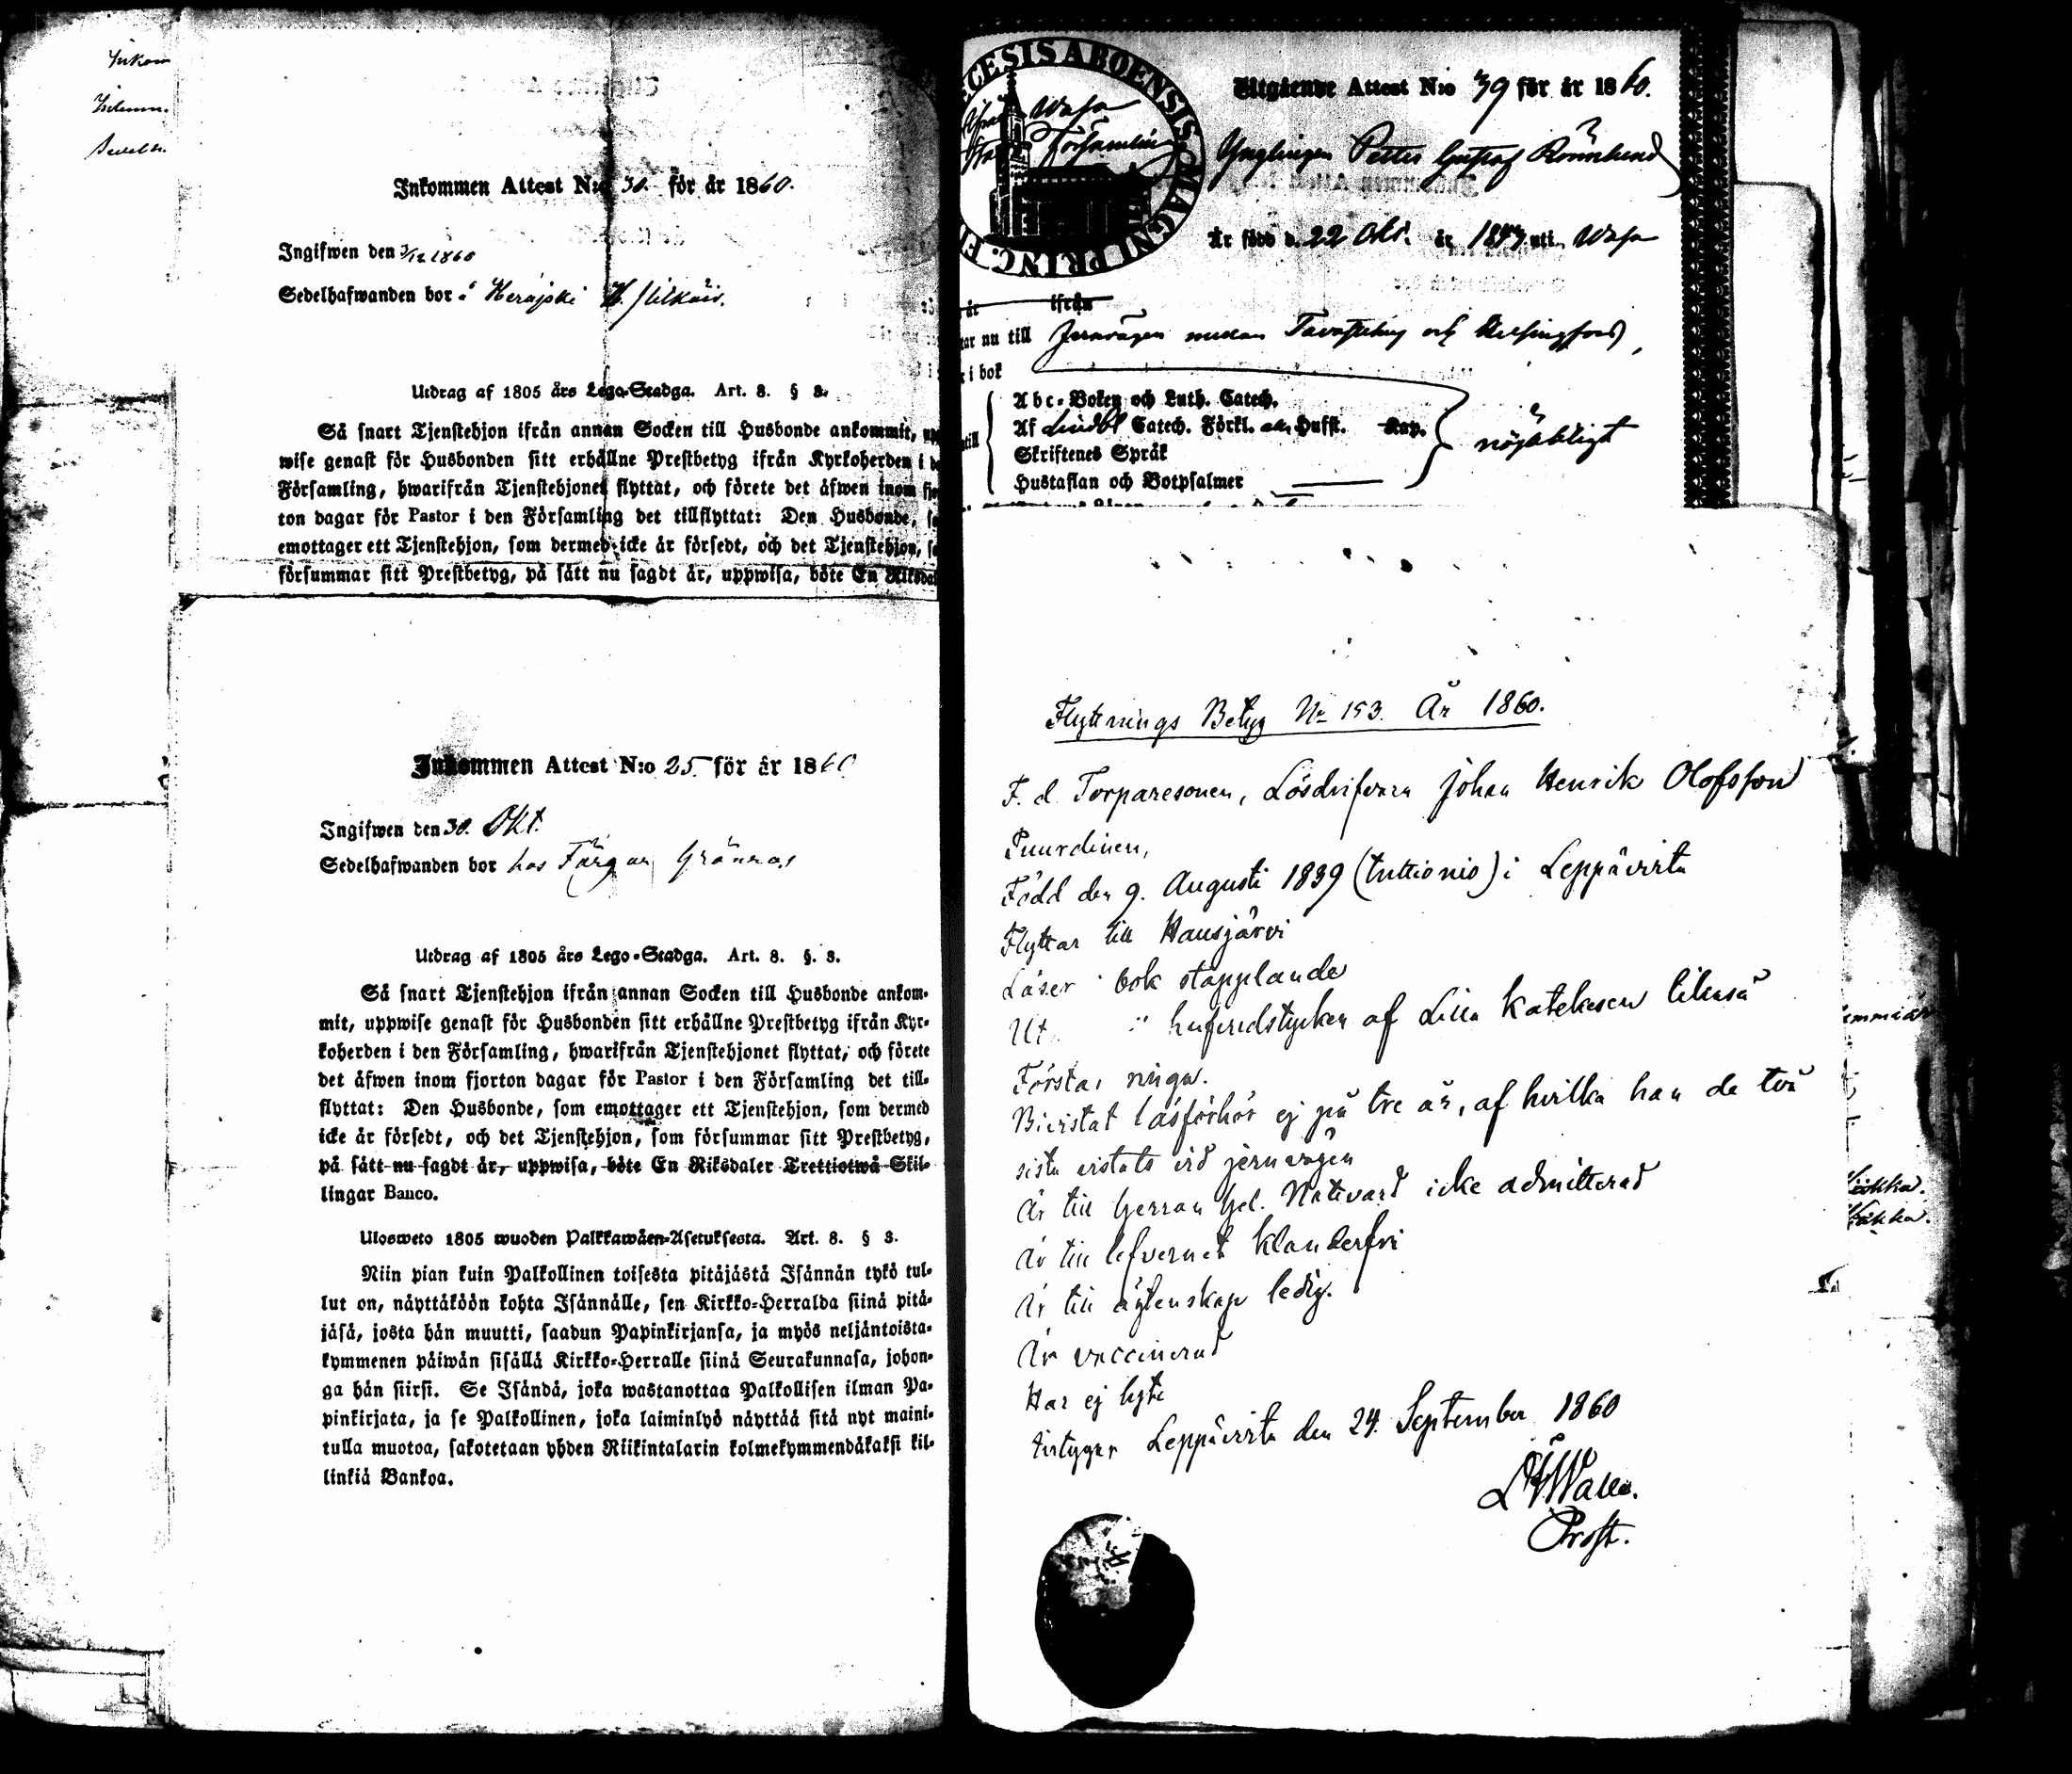 Inkom
Inkomm.
Sedelh.
Inkommen Attest N:o 30. för år 1860.
Ingifwen den 3/12 1860
Sedelhafwanden bor å Kerajoki
Utdrag af 1805 års Lego-Stadga. Art. 8. § 3.
Så snart Tjenstehjon ifrån annan Socken till Husbonde ankommit, upp
wise genast för Husbonden sitt erhållne Prestbetyg ifrån Kyrkoherden i de
Församling, hwarifrån Tjenstehjonet flyttat, och förete det äfwen inom fjor
ton dagar för Pastor i den Församling det tillflyttat: Den Husbonde, so
emottager ett Tjenstehjon, som dermed icke är försedt, och det Tjenstehjon, so
försummar sitt Prestbetyg, på sätt nu sagdt är, uppwisa, böte En Riksdal
Inkommen Attest N:o 25. för år 1860
Ingifwen den 30. Okt.
Sedelhafwanden bor hos Färgar Grönroos
Utdrag af 1805 års Lego-Stadga. Art. 8. §. 3.
Så snart Tjenstehjon ifrån annan Socken till Husbonde ankom-
mit, uppwise genast för Husbonden sitt erhållne Prestbetyg ifrån Kyr-
koherden i den Församling, hwarifrån Tjenstehjonet flyttat, och förete
det äfwen inom fjorton dagar för Pastor i den Församling det till-
flyttat: Den Husbonde, som emottager ett Tjenstehjon, som dermed
icke är försedt, och det Tjenstehjon, som försummar sitt Prestbetyg,
på sätt nu sagdt är, uppwisa, böte En Riksdaler Trettiotwå Skil-
lingar Banco.
Ulosweto 1805 wuoden Palkkawäen-Asetuksesta. Art. 8. § 3.
Niin pian kuin Palkollinen toisesta pitäjästä Isännän tykö tul-
lut on, näyttäköön kohta Isännälle, sen Kirkko-Herralda siinä pitä-
jäsä, josta hän muutti, saadun Papinkirjansa, ja myös neljäntoista-
kymmenen päiwän sisällä Kirkko-Herralle siinä Seurakunnasa, johon-
ga hän siirsi. Se Isändä, joka wastanottaa Palkollisen ilman Pa-
pinkirjata, ja se Palkollinen, joka laiminlyö näyttää sitä nyt maini-
tulla muotoa, sakotetaan yhden Riikintalarin kolmekymmendäkaksi kil-
linkiä Bankoa.
ECCESIS ABOENSIS MAGNI PRINC. FI
Wasa
Församling
Utgående Attest N:o 39 för år 1860.
Ynglingen Petter Gustaf Rönnlund
Är född d. 22 Okt. år 1843 uti Wasa
år ifrån
tar nu till Jernvägen mellan Tavastehus och Helsingfors,
r i bok
Abc-Boken och Luth. Catech.
Af Lindbl Catech. Förkl. Hufst. Kap.
Skriftenes Språk
Hustaflan och Botpsalmer
ntill
nöjaktigt
Flyttnings Betyg No 153. År 1860.
F. d. Torparesonen, Lösdrifvaren Johan Henrik Olofsson
Puurdinen,
Född den 9. Augusti 1839 (trettionio) i Leppävirta
Flyttar till Hausjärvi
Läser i bok stapplande
Ut. " hufvudstycken af Lilla Katekesen likaså
Förstår ringa.
Bivistat läsförhör ej på tre år, af hvilka han de två
sista vistats vid jernvägen
Är till Herrans Hel. Nattvard icke admitterad
Är till lefvernet klanderfri
Är till äktenskap ledig.
Är vaccinerad
Har ej lyte
Intygar Leppävirta den 24. September 1860
Prost.